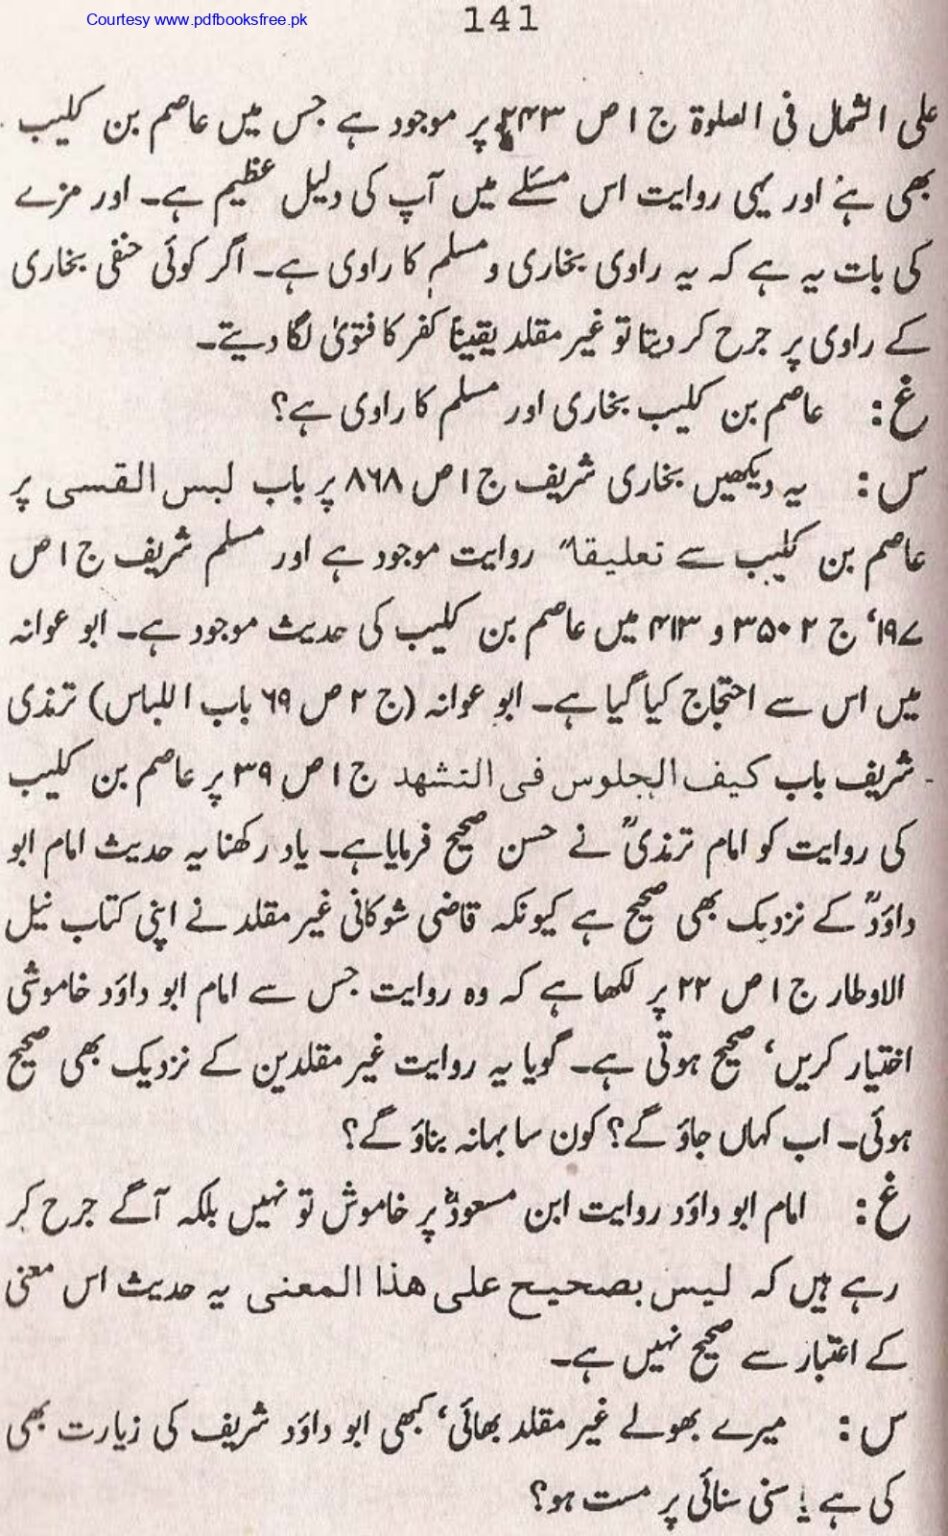 Courtesy www.pdfbooksfree.pk
141
علی الشمال فی الصلوۃ ج ۱ ص ۲۴۳ پر موجود ہے جس میں عاصم بن کلیب
بھی ہے اور یہی روایت اس مسئلے میں آپ کی دلیل عظیم ہے۔ اور مزے
کی بات یہ ہے کہ یہ راوی بخاری و مسلم کا راوی ہے۔ اگر کوئی حنفی بخاری
کے راوی پر جرح کر دیتا تو غیر مقلد یقیناً کفر کا فتویٰ لگا دیتے۔
غ : عاصم بن کلیب بخاری اور مسلم کا راوی ہے؟
س : یہ دیکھیں بخاری شریف ج ۱ ص ۸۶۸ پر باب لبس القسی پر
عاصم بن کلیب سے تعلیقاً روایت موجود ہے اور مسلم شریف ج ۱ ص
۱۹۷‘ ج ۲ ۳۵۰ و ۴۱۳ میں عاصم بن کلیب کی حدیث موجود ہے۔ ابو عوانہ
میں اس سے احتجاج کیا گیا ہے۔ ابو عوانہ (ج ۲ ص ۶۹ باب اللباس) ترمذی
شریف باب کیف الجلوس فی التشھد ج ۱ ص ۳۹ پر عاصم بن کلیب
کی روایت کو امام ترمذیؒ نے حسن صحیح فرمایا ہے۔ یاد رکھنا یہ حدیث امام ابو
داؤدؒ کے نزدیک بھی صحیح ہے کیونکہ قاضی شوکانی غیر مقلد نے اپنی کتاب نیل
الاوطار ج ۱ ص ۲۲ پر لکھا ہے کہ وہ روایت جس سے امام ابو داؤد خاموشی
اختیار کریں‘ صحیح ہوتی ہے۔ گویا یہ روایت غیر مقلدین کے نزدیک بھی صحیح
ہوئی۔ اب کہاں جاؤ گے؟ کون سا بہانہ بناؤ گے؟
غ : امام ابو داؤد روایت ابن مسعودؓ پر خاموش تو نہیں بلکہ آگے جرح کر
رہے ہیں کہ لیس بصحیح علی ھذا المعنی یہ حدیث اس معنی
کے اعتبار سے صحیح نہیں ہے۔
س : میرے بھولے غیر مقلد بھائی‘ کبھی ابو داؤد شریف کی زیارت بھی
کی ہے یا سنی سنائی پر مست ہو؟